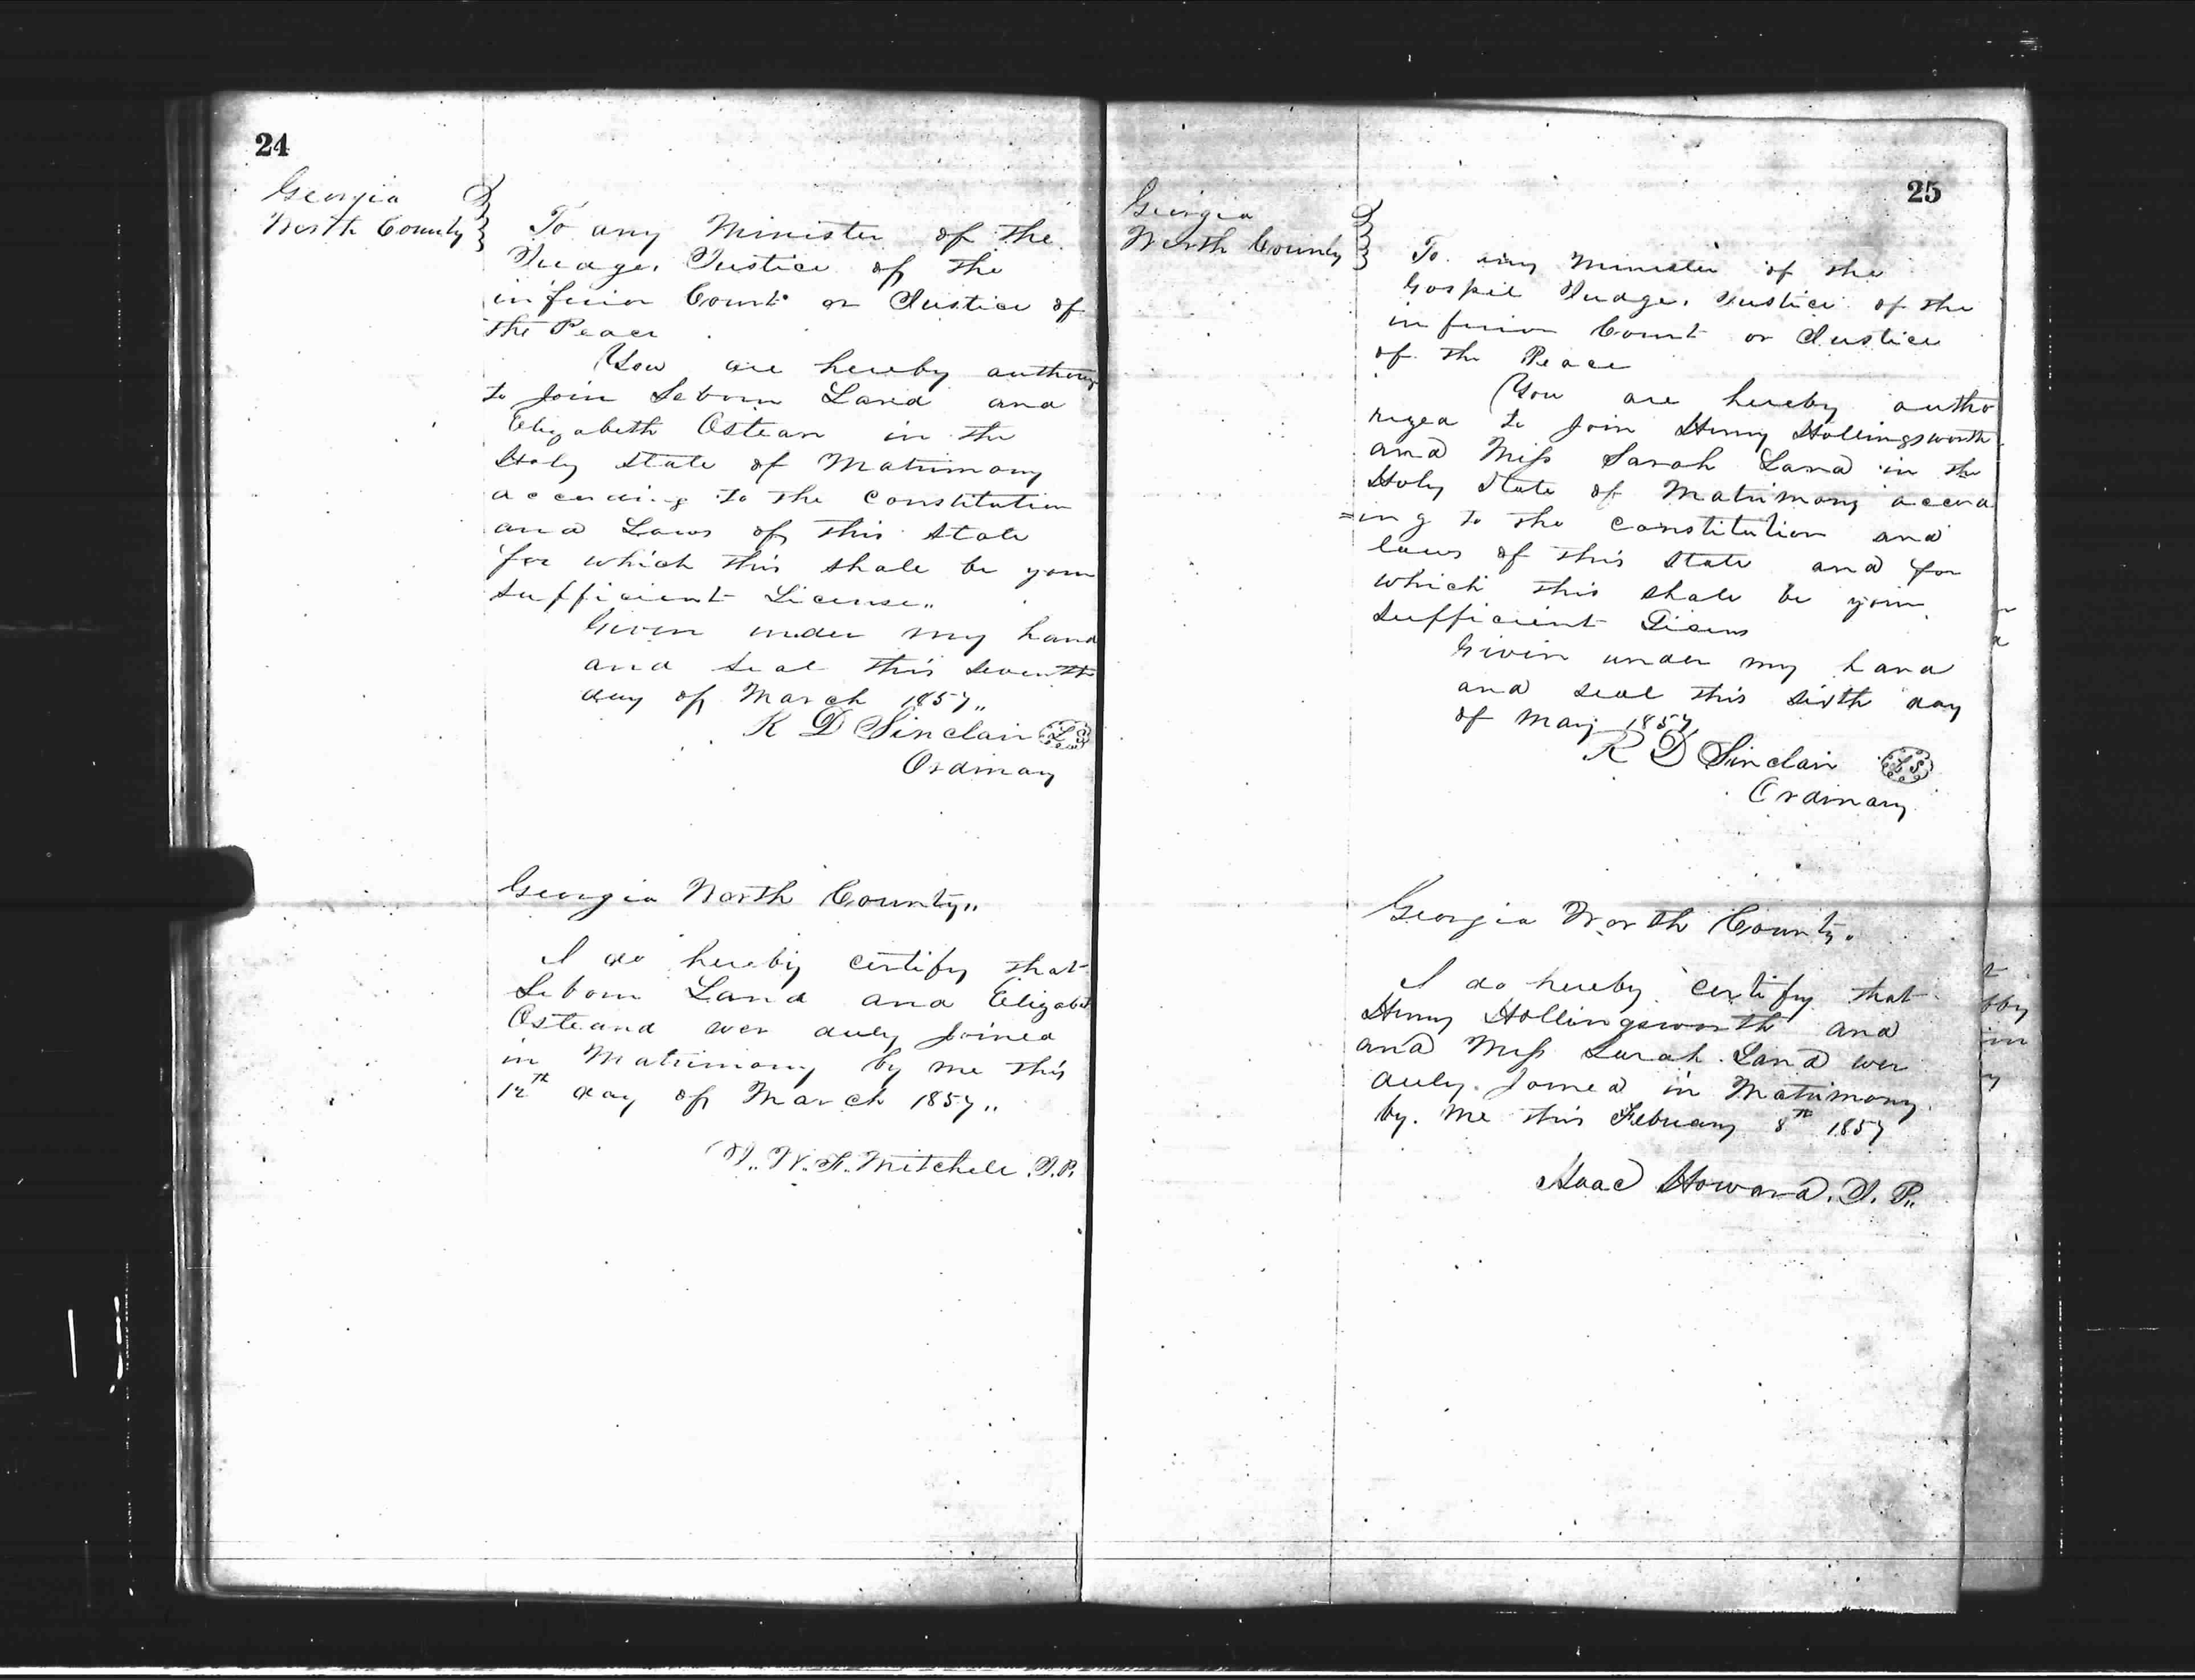 24
Georgia
Worth County
To any Minister of the
Judge, Justice of the
inferior Court or Justice of
the Peace
You are hereby authori
to Join Seborn Land and
Elizabeth Ostean in the
Holy State of Matrimony
according to the Constitution
and Laws of this State
for which this shall be your
sufficient License"
Given under my hand
and seal this seventh
day of March 1857"
R D Sinclair LS
Ordinary
Georgia Worth County"
I do hereby certify that
Seborn Land and Elizabet
Osteand wer duly Joined
in Matrimony by me this
12th day of March 1857"
J. W. F. Mitchell J.P.
25
Georgia
Worth County
To any Minister of the
Gospil Judge, Justice of the
inferior Court or Justice
of the Peace
You are hereby autho
rized to Join Henry Hollingsworth
and Miss Sarah Land in the
Holy State of Matrimony accord
=ing to the Constitution and
laws of this State and for
which this shall be your
sufficient Licens
Given under my hand
and seal this sixth day
of May 1857
R D Sinclair LS
Ordinary
Georgia Worth County.
I do hereby certify that
Henry Hollingsworth and
and Miss Sarah Land wer
duly Joined in Matrimony
by me this Febuary 8th 1857
Isaac Howard, J. P.